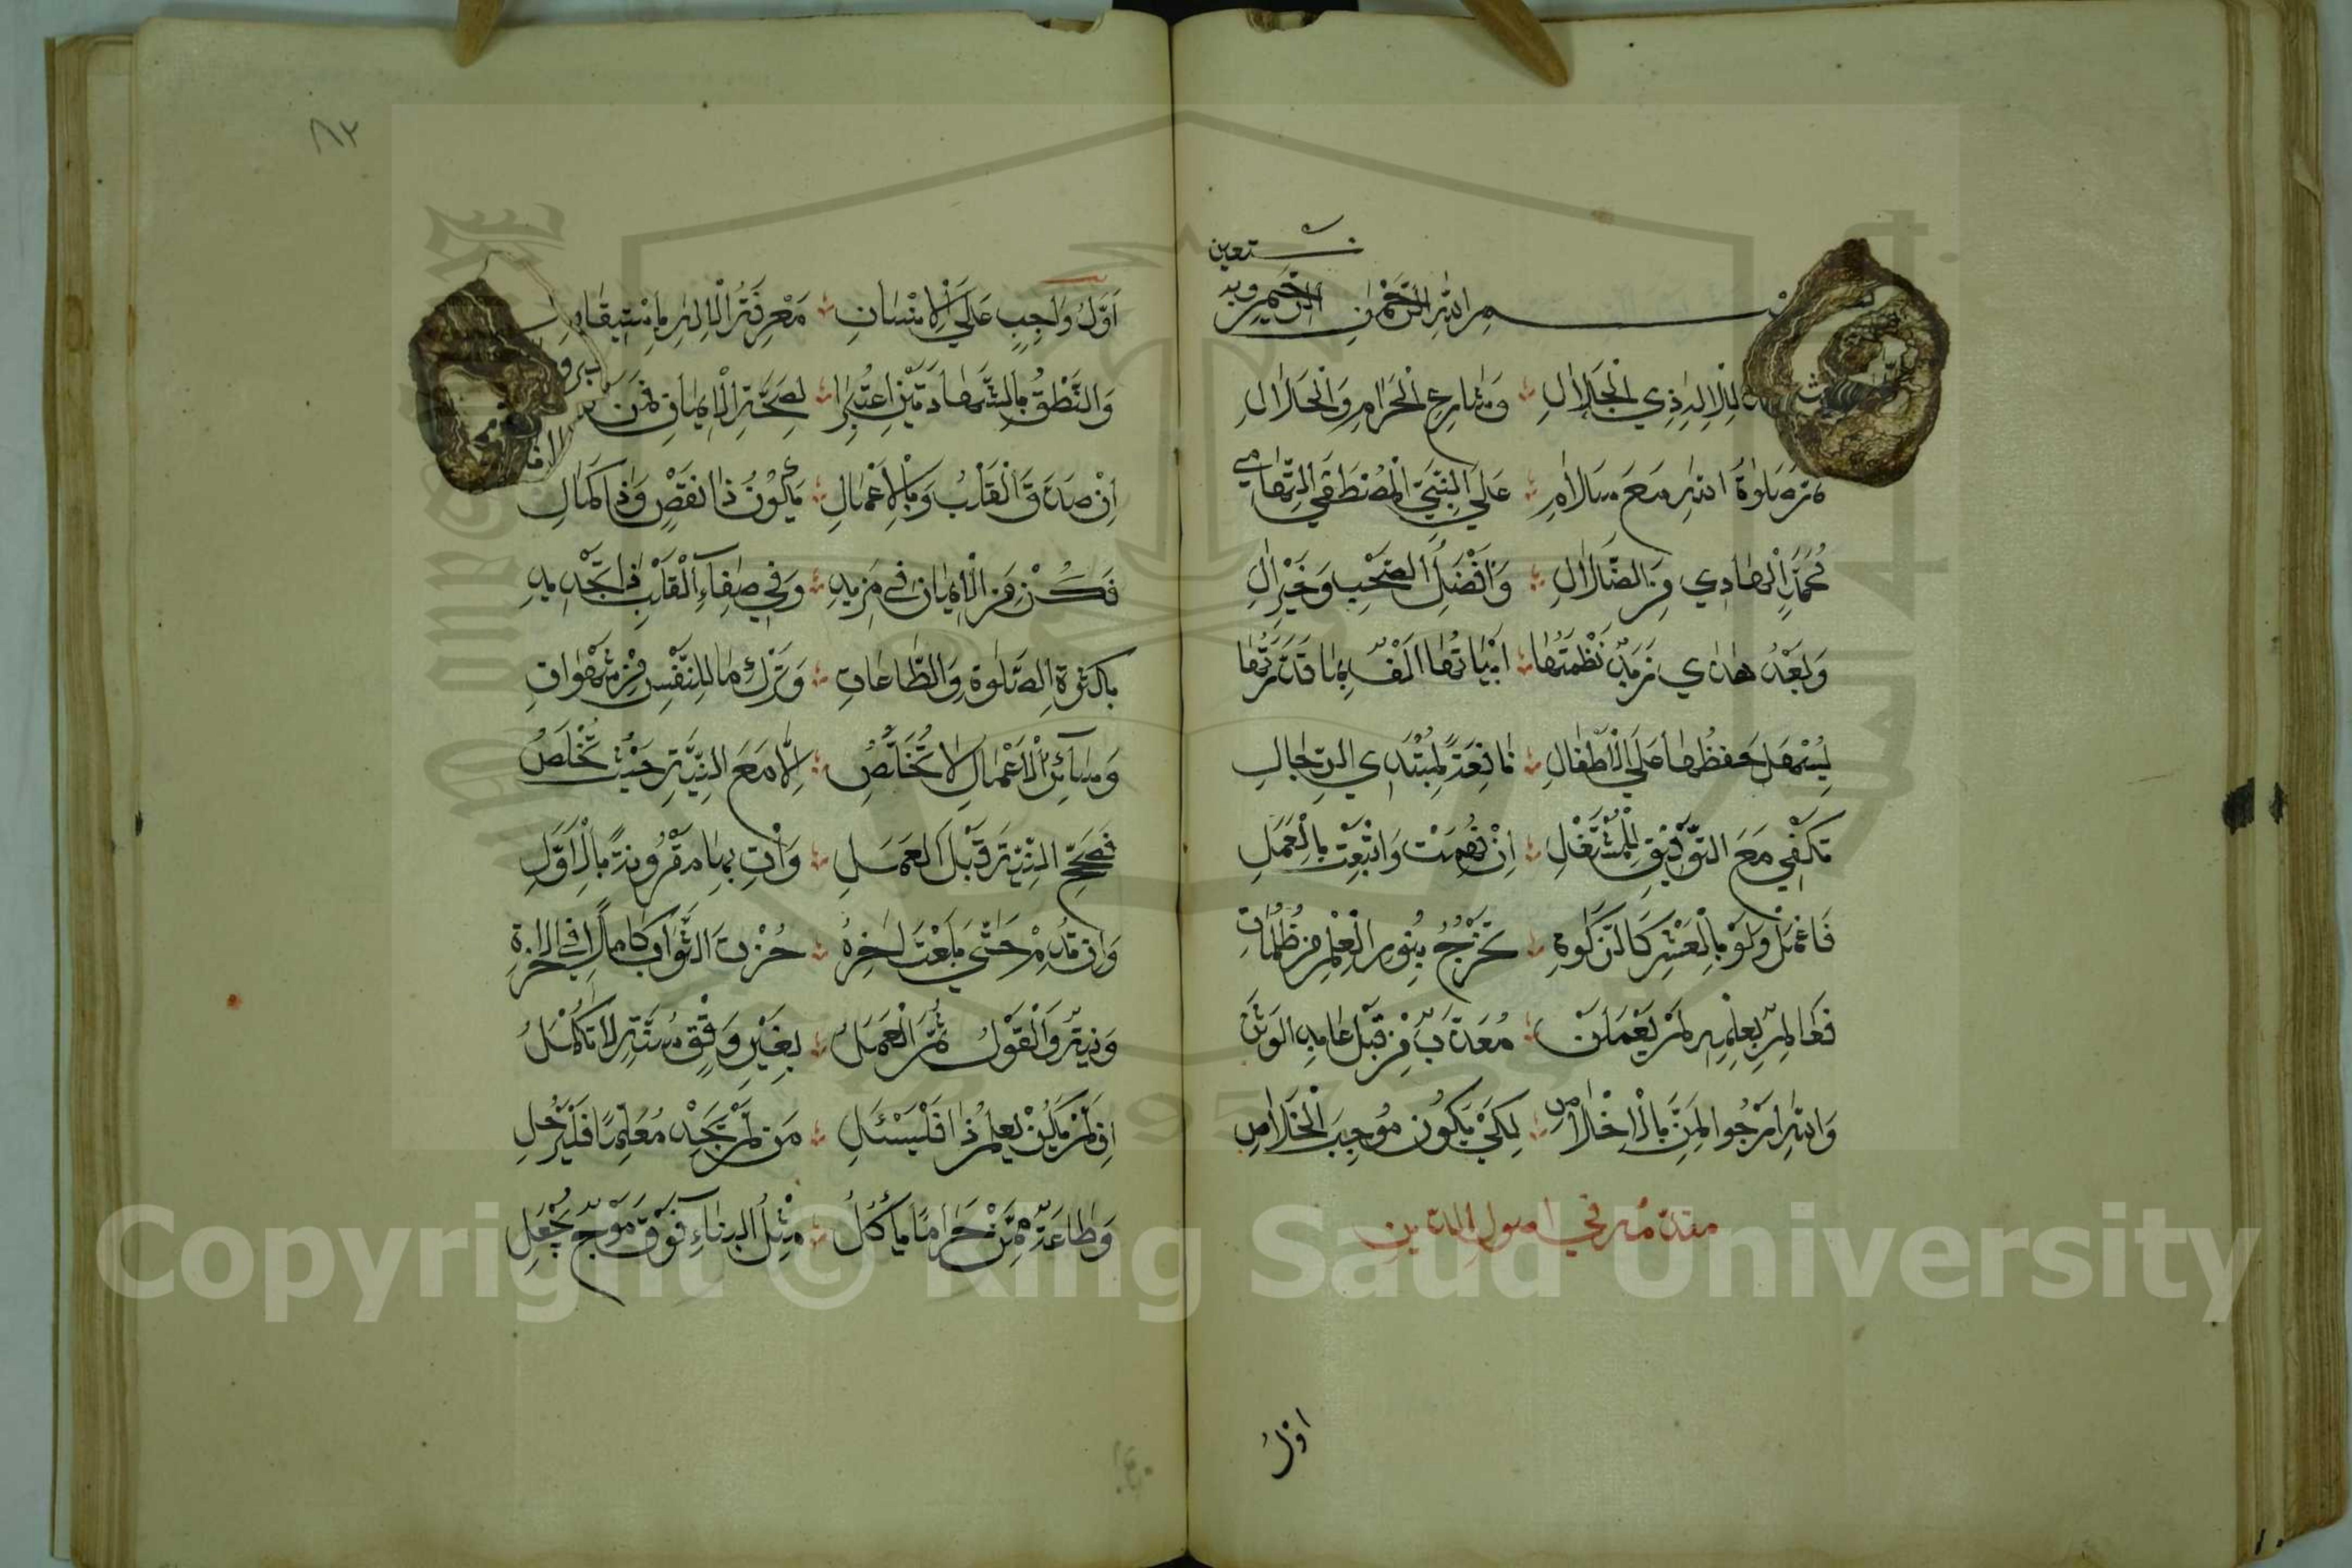 بسم الله الرحمن الرحيم وبه نستعين
لِلْإِلٰهِ ذِي الْجَلَالِ وَشَارِعِ الْحَرَامِ وَالْحَلَالِ
ثم صَلٰوةُ اللهِ مَعَ سَلَامِ عَلَي النَّبِيِّ الْمُصْطَفَي التِّهَامِي
مُحَمَّدٍ الْهَادِي مِنَ الضَّلَالِ وَأَفْضَلِ الصَّحْبِ وَخَيْرِ اٰلِ
وَبَعْدُ هٰذِي زُبَدٌ نَظَمْتُهَا أَبْيَاتُهَا أَلْفٌ بِمَا قَدْ زِدْتُهَا
لِيَسْهُلَ حِفْظُهَا عَلَي الْأَطْفَالِ نَافِعَةً لِمُبْتَدِي الرِّجَالِ
تَكْفِي مَعَ التَّوْفِيقِ لِلْمُشْتَغِلِ إِنْ فُهِمَتْ وَاتْبِعَتْ بِالْعَمَلِ
فَاعْمَلْ وَلَوْ بِالْعُشْرِ كَالزَّكٰوةِ تَخْرُجُ بِنُورِ الْعِلْمِ مِنْ ظُلُمَاتِ
فَعَالِمٌ بِعِلْمِهِ لَمْ يَعْمَلَنْ مُعَذَّبٌ مِنْ قَبْلِ عَابِدِ الوَثَنْ
وَاللهَ أَرْجُو الْمَنَّ بِالْإِخْلَاصِ لِكَيْ يَكُونَ مُوجِبَ الْخَلَاصِ
مقدمة في اصول الدين
اوّلُ
٨٢
أَوَّلُ وَاجِبٍ عَلَي الْإِنْسَانِ مَعْرِفَةُ الْإِلٰهِ بِاسْتِيقَانِ
وَالنُّطْقُ بِالشَّهَادَتَيْنِ اعْتُبِرَا لِصِحَّةِ الْإِيمَانِ مِمَّنْ
إِنْ صَدَّقَ الْقَلْبُ وَبِالْأَعْمَالِ يَكُونُ ذَا نَقْصٍ وَذَا كَمَالِ
فَكُنْ مِنَ الْإِيمَانِ فِي مَزِيدِ وَفِي صَفَاءِ الْقَلْبِ ذَا تَجْدِيدِ
بِكَثْرَةِ الصَّلٰوةِ وَالطَّاعَاتِ وَتَرْكِ مَا لِلنَّفْسِ مِنْ شَهَوَاتِ
وَسَائِرُ الْأَعْمَالِ لَا تُخَلَّصُ إِلَّا مَعَ النِّيَّةِ حَيْثُ تُخْلَصُ
فَصَحِّحِ النِّيَّةَ قَبْلَ الْعَمَلِ وَأْتِ بِهَا مَقْرُونَةً بِالْأَوَّلِ
وَإِنْ تَدُمْ حَتَّي بَلَغْتَ اٰخِرَهْ حُزْتَ الثَّوَابَ كَامِلًا فِي الْاٰخِرَةِ
وَنِيَّةٌ وَالْقَوْلُ ثُمَّ الْعَمَلُ بِغَيْرِ وَفْقِ سُنَّةٍ لَا تَكْمُلُ
إِنْ لَمْ يَكُنْ يَعْلَمُ ذَا فَلْيَسْئَلِ مَنْ لَمْ يَجِدْ مُعَلِّمًا فَلْيَرْحَلِ
وَطَاعَةٌ مِمَّنْ حَرَامًا يَأْكُلُ مِثْلُ الْبِنَاءِ فَوْقَ مَوْجٍ يُجْعَلُ
Copyright © King Saud University